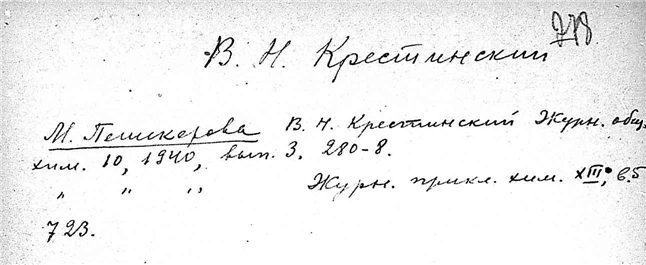 778
В. Н. Крестинский
М. Пешекерова В. Н. Крестинский Журн. общ.
хим. 10, 1940, вып. 3, 280-8.
" " " Журн. прикл. хим. XIII, в.5
723.